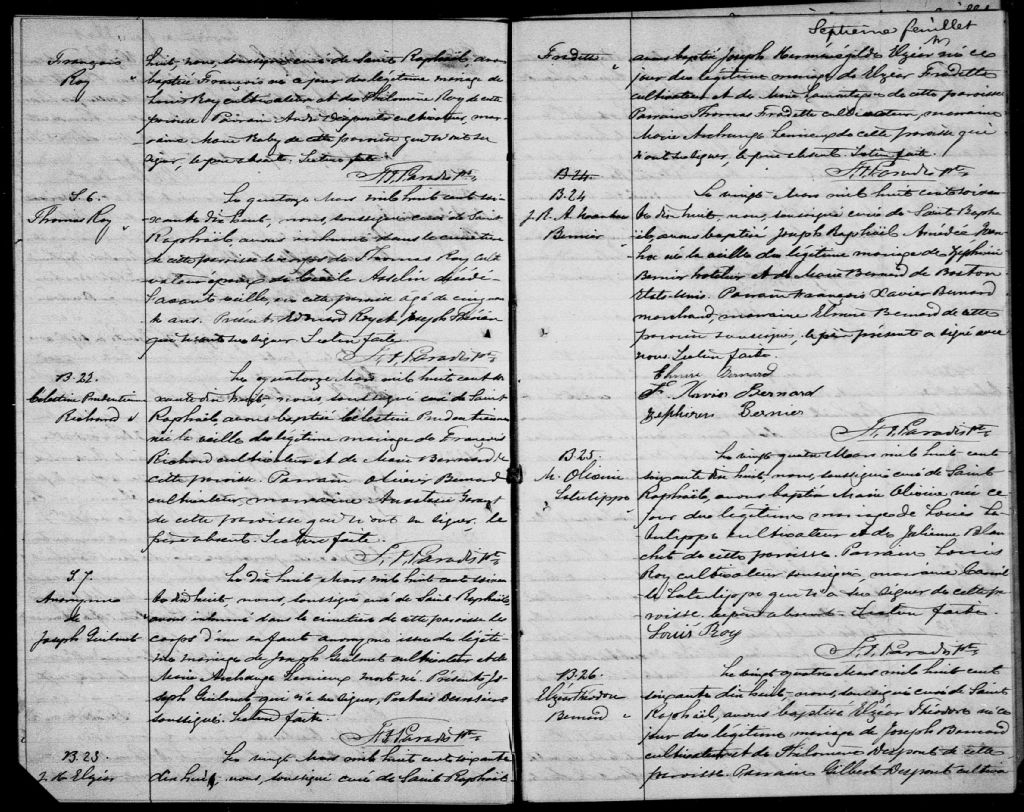 François
Roy
huit, nous, soussigné curé de Saint Raphaël, avons
baptisé François né ce jour du légitime mariage de
Louis Roy cultivateur et de Philomène Roy de cette
paroisse Parrain André cultivateur, mar-
raine Marie Roby de cette paroisse qui n'ont su
signer, le père absent. Lecture faite.
Paradis Ptre
S. 6.
Thomas Roy
Le quatorze Mars mil huit cent soi-
xante dix huit, nous, soussigné curé de Saint
Raphaël, avons inhumé dans le cimetière
de cette paroisse le corps de Thomas Roy culti-
vateur époux de Cécile Asselin décédé
l'avant veille, en cette paroisse agé de cinquan-
te ans. Présents Edouard Roy et Joseph
qui n'ont su signer. Lecture faite.
Paradis Ptre
B. 22.
Célestine Prudentienne
Richard
Le quatorze Mars mil huit cent soi-
xante dix huit, nous, soussigné curé de Saint
Raphaël, avons baptisé Célestine Prudentienne
née la veille du légitime mariage de François
Richard cultivateur et de Marie Bernard de
cette paroisse. Parrain Olivier Bernard
cultivateur marraine Anastasie
de cette paroisse qui n'ont su signer. Le
père absent. Lecture faite.
Paradis Ptre
S. 7.
Anonyme
de
Joseph Guilmet
Le dix huit Mars mil huit cent soixan-
te dix huit, nous, soussigné curé de Saint Raphaël,
avons inhumé dans le cimetière de cette paroisse le
corps d'un enfant anonyme issu du légiti-
me mariage de Joseph Guilmet cultivateur et de
Marie Archange Lemieux mort né. Présents Jo-
seph Guilmet qui n'a su signer,
soussigné. Lecture faite.
Paradis Ptre
B. 23.
J. H. Elzéar
Le vingt Mars mil huit cent soixante
dix huit, nous, soussigné curé de Saint Raphaël
Septième feuillet
Fradette
avons baptisé Joseph Herménégilde Elzéar né ce
jour du légitime mariage de Elzéar Fradette
cultivateur et de Marie de cette paroisse
Parrain Thomas Fradette cultivateur, marraine
Marie Archange Lemieux de cette paroisse qui
n'ont su signer, le père absent. Lecture faite.
Paradis Ptre
B-24
B. 24
J. R. A.
Bernier
Le vingt Mars mil huit cent soixan-
te dix huit, nous, soussigné curé de Saint Rapha-
ël, avons baptisé Joseph Raphaël Amédée
né la veille du légitime mariage de Zéphirin
Bernier hotelier et de Marie Bernard de Boston
Etats-Unis. Parrain François Xavier Bernard
marchand, marraine Elmire Bernard de cette
paroisse soussignés, le père présent a signé avec
nous. Lecture faite.
Elmire Bernard
F. Xavier Bernard
Zephirin Bernier
Paradis Ptre
B. 25.
M. Olivine
Latulippe
Le vingt quatre Mars mil huit cent
soixante dix huit, nous, soussigné curé de Saint
Raphaël, avons baptisé Marie Olivine née ce
jour du légitime mariage de Louis La-
tulippe cultivateur et de Julienne Blan-
chet de cette paroisse. Parrain Louis
Roy cultivateur soussigné, marraine
Latulippe qui n'a su signer de cette pa-
roisse, le père absent. Lecture faite.
Louis Roy
Paradis Ptre
B. 26.
Elzéar Théodore
Bernard
Le vingt quatre Mars mil huit cent
soixante dix huit, nous, soussigné curé de Saint
Raphaël, avons baptisé Elzéar Théodore né ce
jour du légitime mariage de Joseph Bernard
cultivateur et de Philomène Despont de cette
paroisse. Parrain Gilbert Despont cultiva